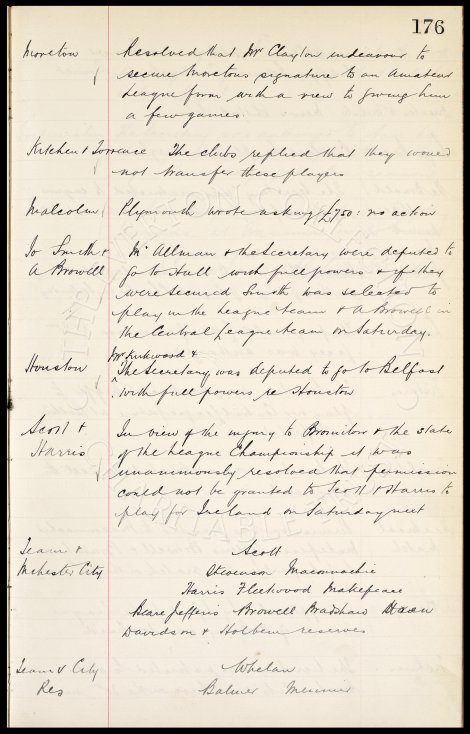 176
Moreton Resolved that Mr Clayton endeavour to
secure Moretons signature to an Amateur
League form with a view to giving him
a few games.
Kitchen & Torrence The clubs replied that they would
not transfer these players
Malcolm Plymouth wrote asking £750: no action
Jo Smith & Mr Allman & the Secretary were deputed to
A Browell go to Hull with full powers & if they
were secured Smith was selected to
play in the League team & A Browell in
the Central League team on Saturday.
Mr Kirkwood &
Houston The Secretary was deputed to go to Belfast
with full powers re Houston
Scott & In view of the injury to Bromilow & the state
Harris of the League Championship it was
unanimously resolved that permission
could not be granted to Scott & Harris to
play for Ireland on Saturday next
Team v Scott
Mchester City Stevenson Maconnachie
Harris Fleetwood Makepeace
Beare Jefferis Browell Bradshaw
Davidson & Holbem reserves
Team v City Whelan
Res Balmer Meunier